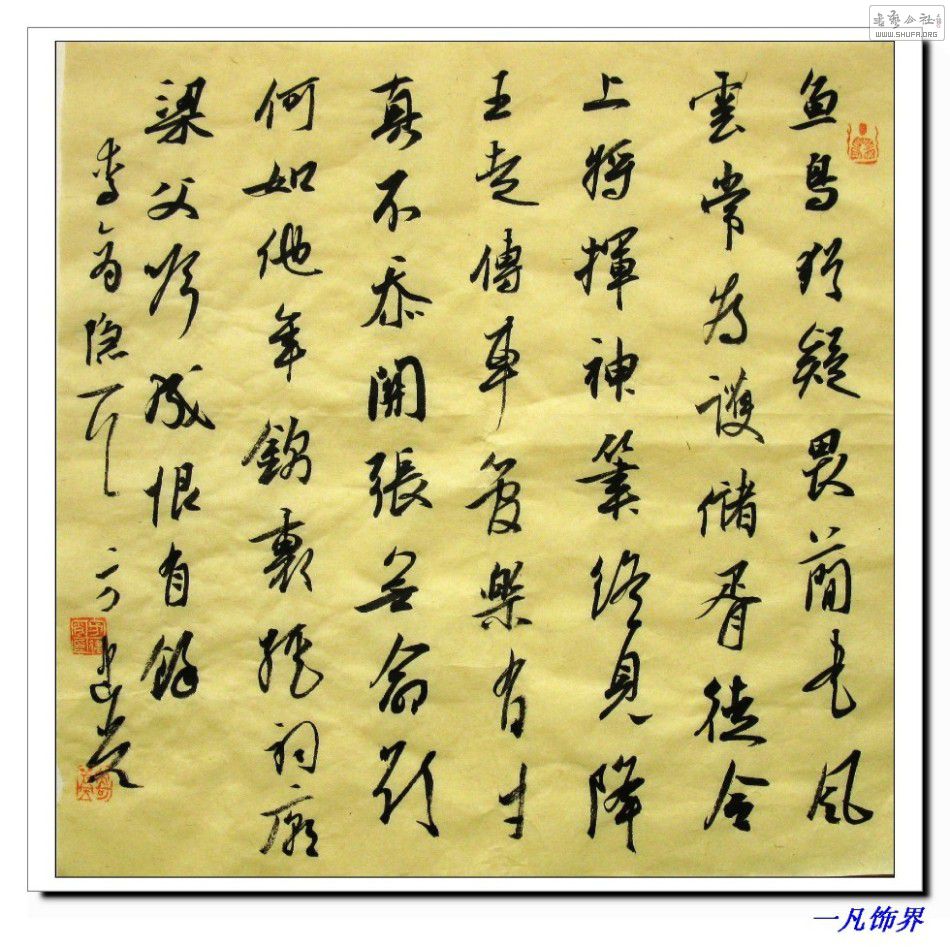 書藝公社
WWW.SHUFA.ORG
魚鳥猶疑畏簡書風
雲常為護儲胥徒令
上將揮神筆終見降
王走傳車管樂有才
真不忝開張無命欲
何如他年錦裏經祠廟
梁父吟成恨有餘
李商隐
一凡饰界